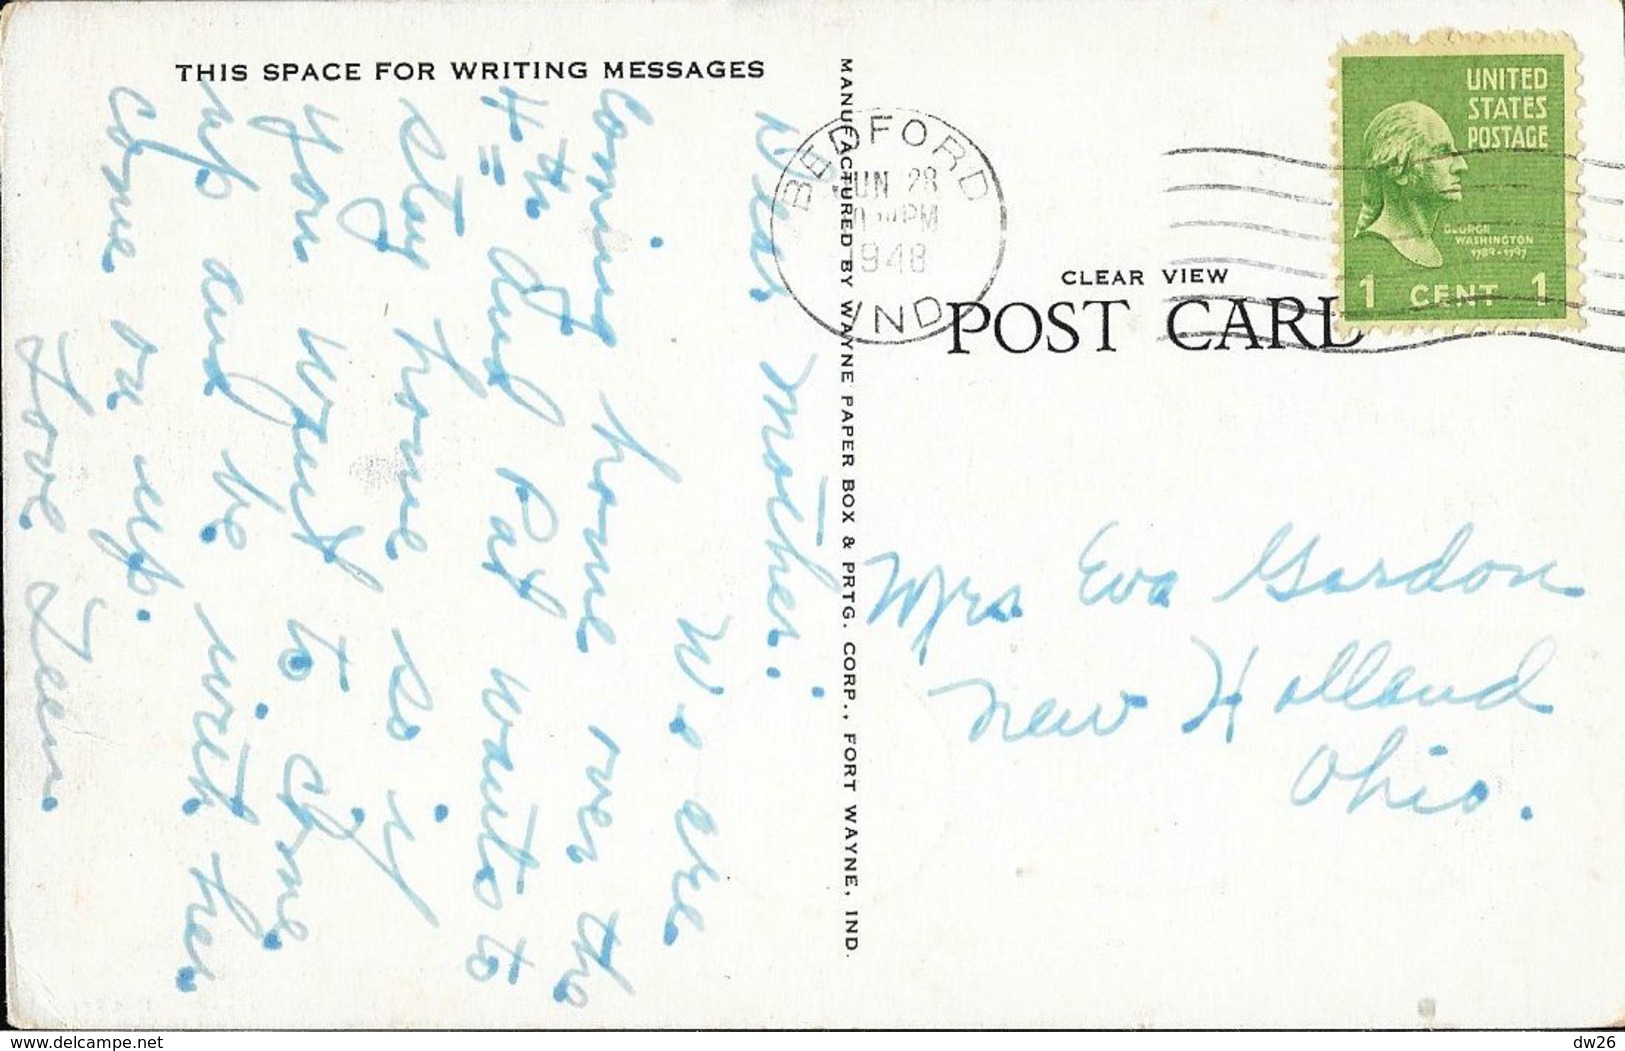 THIS SPACE FOR WRITING MESSAGES
Dear Mother.
We are
coming home over the
4th and Pat wants to
stay home so if
you want to come
up and be with her
come on up.
Love Teen.
MANUFACTURED BY WAYNE PAPER BOX & PRTG. CORP., FORT WAYNE, IND.
BEDFORD
JUN 28
PM
1948
IND
UNITED
STATES
POSTAGE
GEORGE
WASHINGTON
1789-1797
1 CENT 1
CLEAR VIEW
POST CARD
Mrs Eva Gordon
New Holland
Ohio.
www.delcampe.net
dw26